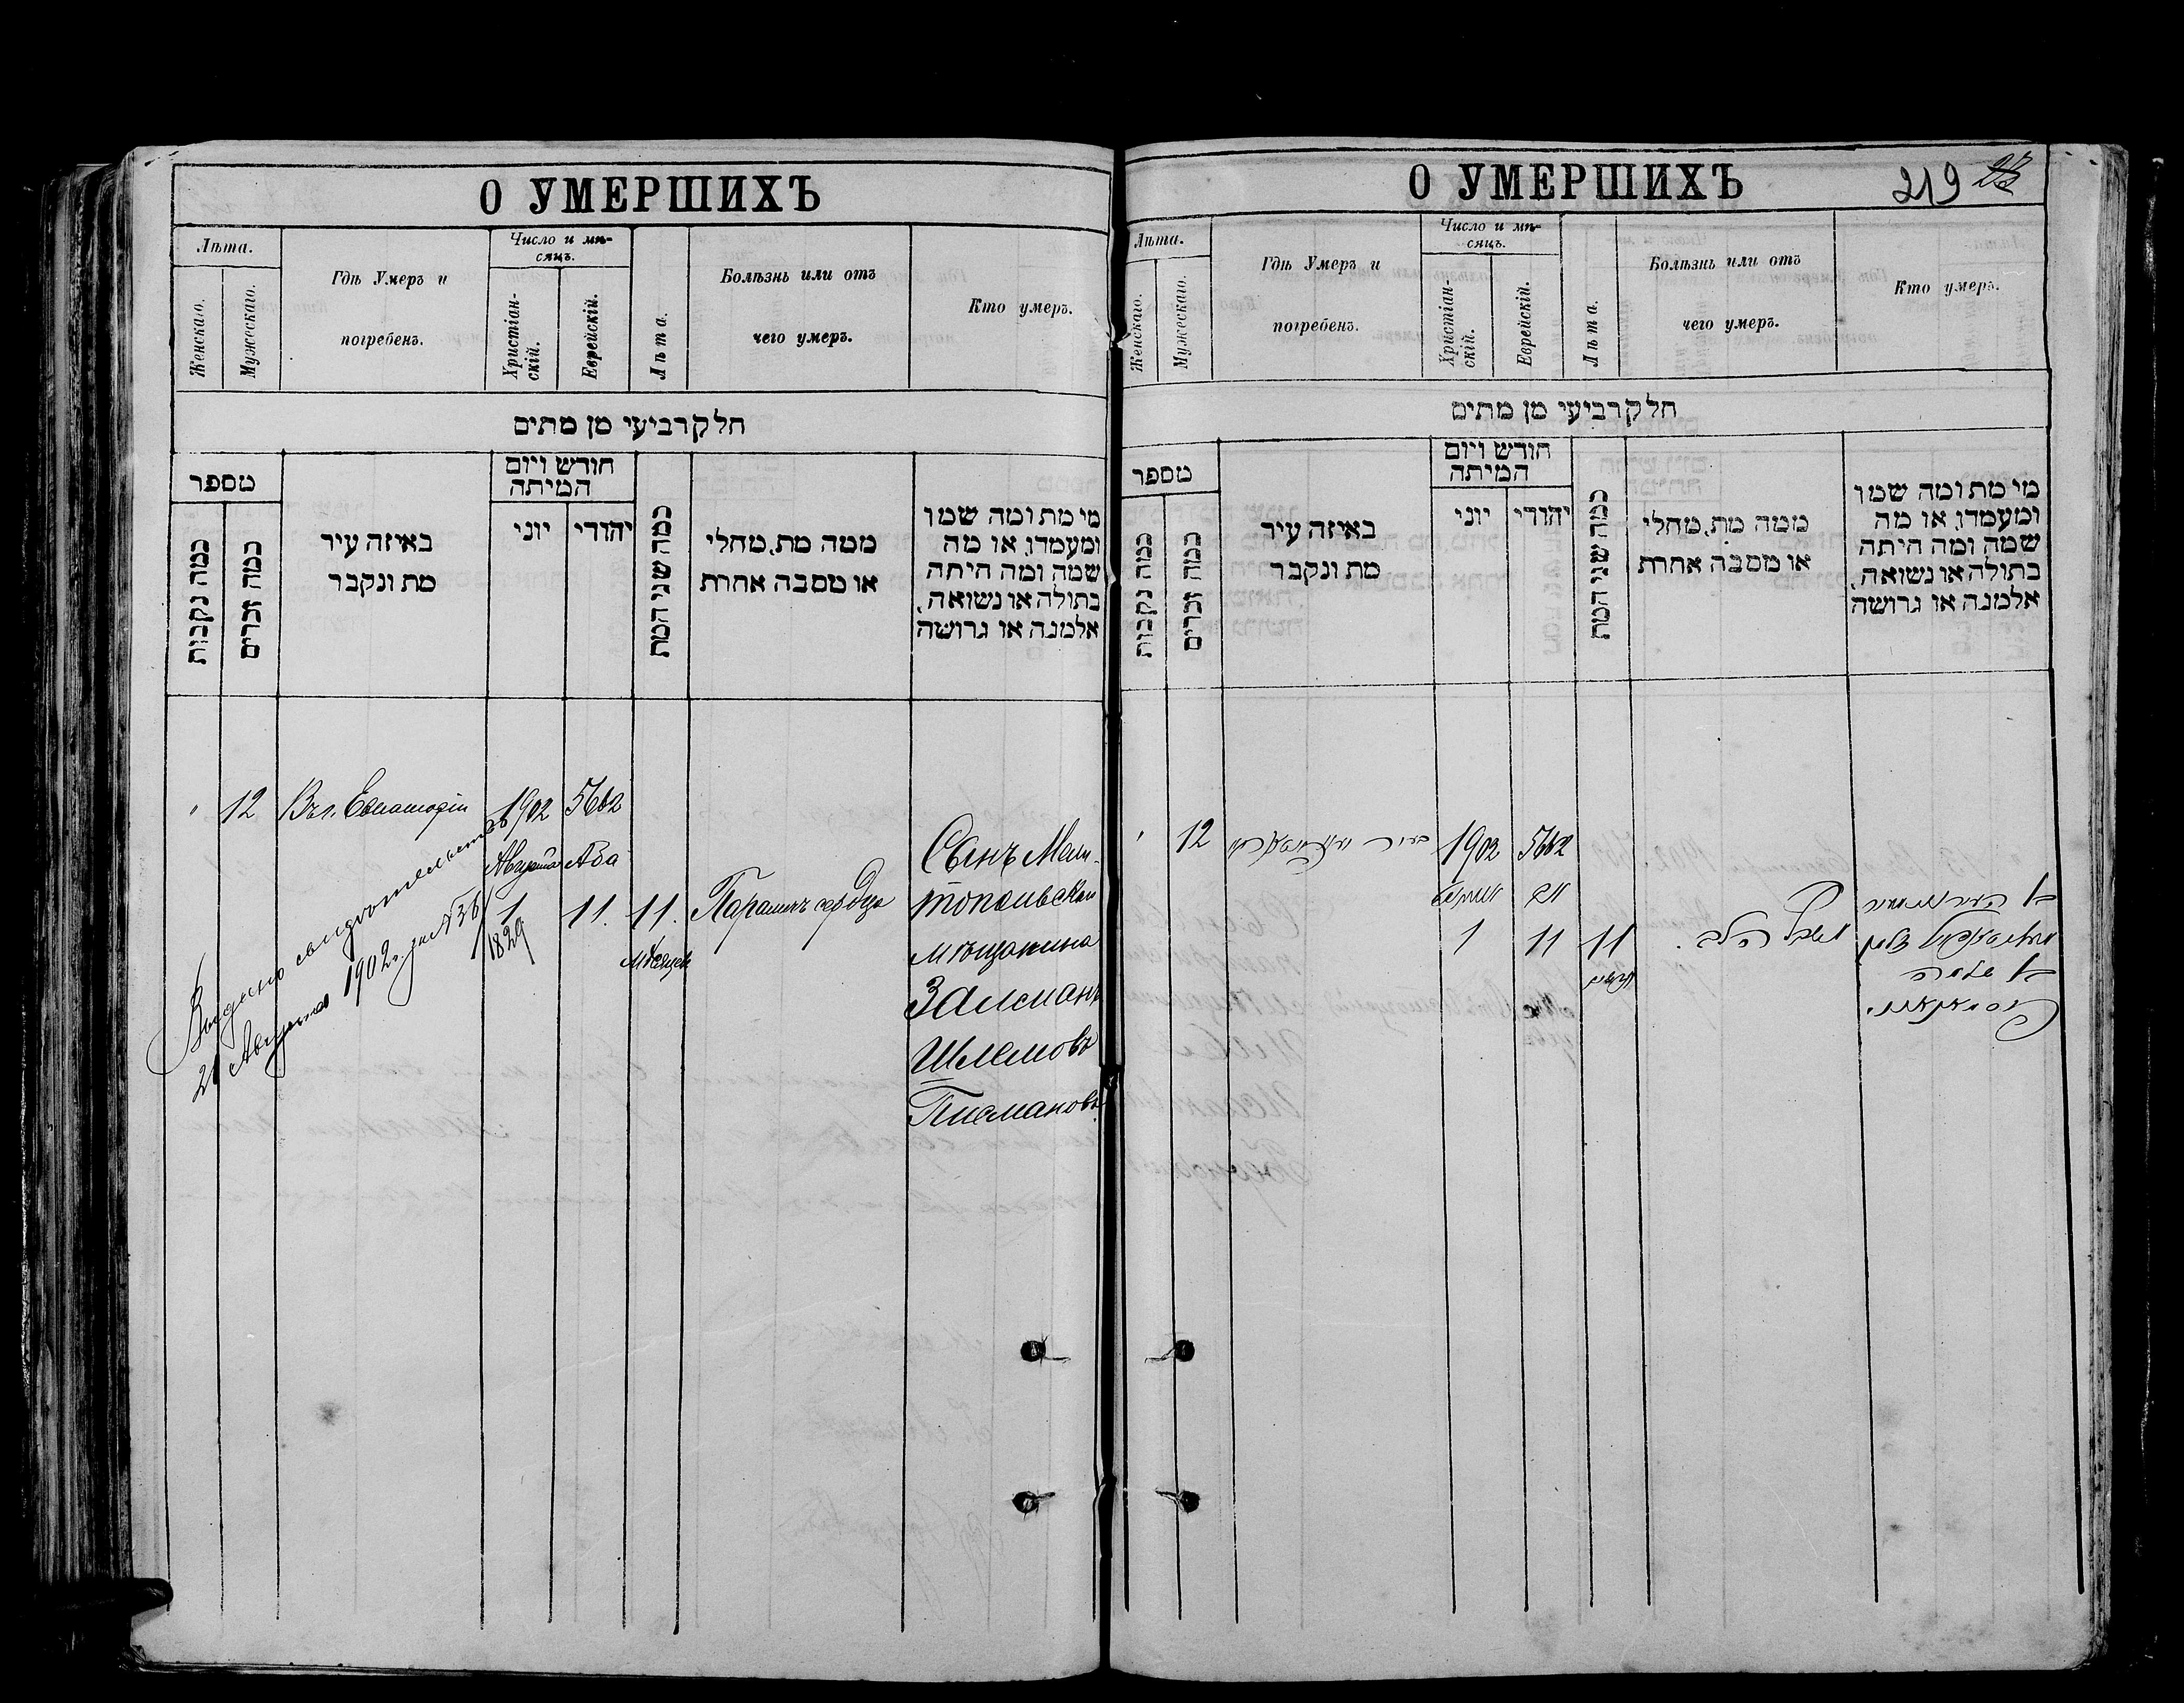 О УМЕРШИХЪ
Лѣта.
Женскаго.
Мужескаго.
Гдѣ Умеръ и
погребенъ.
Число и мѣ-
сяцъ.
Христіан-
скій.
Еврейскій.
Лѣта.
Болѣзнь или отъ
чего умеръ.
Кто умеръ.
חלק רביעי מן מתים
מספר
כמה נקבות
כמה זכרים
באיזה עיר
מת ונקבר
חודש ויום
המיתה
יוני
יהודי
כמה שני המת
ממה מת, מחלי
או מסבה אחרת
מי מת ומה שמו
ומעמדו, או מה
שמה ומה היתה
בתולה או נשואה,
אלמנה או גרושה
12
Въ г. Евпаторіи
1902
Августа
1
1829
5662
Аба
11.
11.
Мѣсяцевъ
Параличъ сердца
Сынъ Мели-
топольскаго
мѣщанина
Залманъ
Шлемовъ
Писмановъ.
Выдано свидѣтельство
21 Августа 1902 г. за № 36
О УМЕРШИХЪ
219
Лѣта.
Женскаго.
Мужескаго.
Гдѣ Умеръ и
погребенъ.
Число и мѣ-
сяцъ.
Христіан-
скій.
Еврейскій.
Лѣта.
Болѣзнь или отъ
чего умеръ.
Кто умеръ.
חלק רביעי מן מתים
מספר
כמה נקבות
כמה זכרים
באיזה עיר
מת ונקבר
חודש ויום
המיתה
יוני
יהודי
כמה שני המת
ממה מת, מחלי
או מסבה אחרת
מי מת ומה שמו
ומעמדו, או מה
שמה ומה היתה
בתולה או נשואה,
אלמנה או גרושה
12
בעיר
1902
1
5662
אב
11
11
חדשים
הלב
זלמן
שלמה